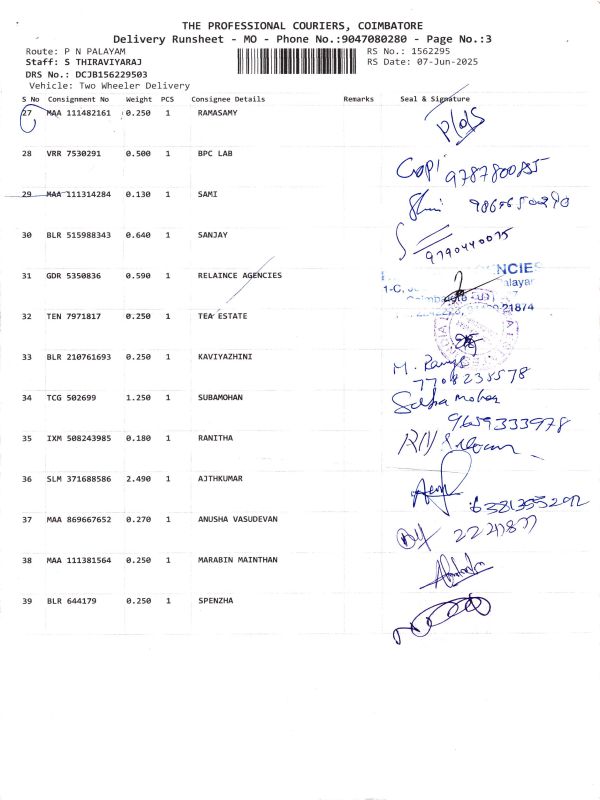 THE PROFESSIONAL COURIERS, COIMBATORE
Delivery Runsheet - MO - Phone No.:9047080280 - Page No.:3
Route: P N PALAYAM RS No.: 1562295
Staff: S THIRAVIYARAJ RS Date: 07-Jun-2025
DRS No.: DCJB156229503
Vehicle: Two Wheeler Delivery
S No Consignment No Weight PCS Consignee Details Remarks Seal & Signature
27 MAA 111482161 0.250 1 RAMASAMY
28 VRR 7530291 0.500 1 BPC LAB Gopi
29 MAA 111314284 0.130 1 SAMI
30 BLR 515988343 0.640 1 SANJAY 9790440075
31 GDR 5350836 0.590 1 RELAINCE AGENCIES NCIES
32 TEN 7971817 0.250 1 TEA ESTATE 21874
33 BLR 210761693 0.250 1 KAVIYAZHINI M.
7708235578
34 TCG 502699 1.250 1 SUBAMOHAN Suba mohan
9659333978
35 IXM 508243985 0.180 1 RANITHA
36 SLM 371688586 2.490 1 AJTHKUMAR
37 MAA 869667652 0.270 1 ANUSHA VASUDEVAN
38 MAA 111381564 0.250 1 MARABIN MAINTHAN
39 BLR 644179 0.250 1 SPENZHA